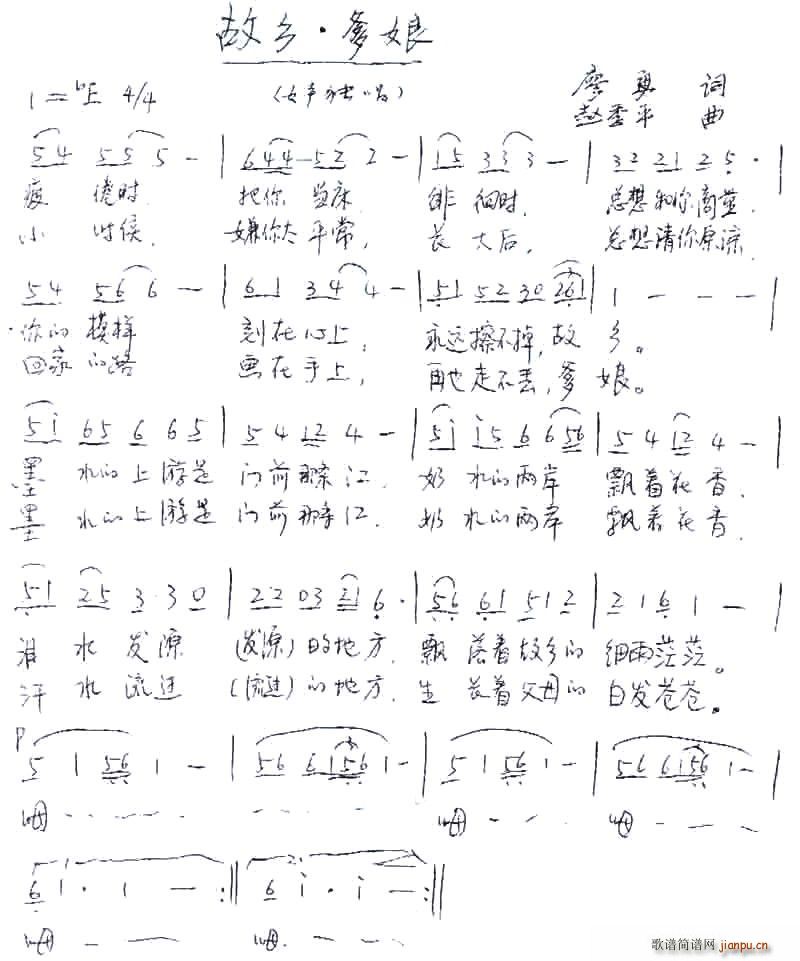 故乡·爹娘
1=♭E 4/4 （女声独唱） 廖勇 词
赵季平 曲
5 4 5 5 5 - | 6 4 4 - 5 2 2 - | 1 5 3 3 3 - | 3 2 2 1 2 5 · |
疲 倦时 把你 当床 徘 徊时 总想和你商量
小 时候 嫌你太 平常， 长 大后， 总想请你原谅
5 4 5 6 6 - | 6 1 3 4 4 - | 5 1 5 2 3 0 2 6 1 | 1 - - - |
你的 模样 刻在心上， 永远擦不掉，故 乡。
回家的路 画在手上， 再也走不丢，爹 娘。
5 i 6 5 6 6 5 | 5 4 1 2 4 - | 5 i i 5 6 6 5 6 | 5 4 1 2 4 - |
墨 水的上游是 门前那条江 奶 水的两岸 飘着花香，
墨 水的上游是 门前那条江， 奶 水的两岸 飘着花香，
5 1 2 5 3 · 3 0 | 2 2 0 3 2 1 6 · | 5 6 6 1 5 1 2 | 2 1 6 1 - |
泪 水 发源 （发源）的地方， 飘 落着故乡的 细雨茫茫。
汗 水 流进 （流进）的地方， 生 长着父母的 白发苍苍。
p
5 1 5 6 1 - | 5 6 6 1 5 6 1 - | 5 1 5 6 1 - | 5 6 6 1 5 6 1 - |
呣 - - - - - - - - 呣 - - 呣 - - -
1. 2.
6 1 · 1 - :|| 6 i · i - :||
呣 - - - 呣. - - -
歌谱简谱网 jianpu.cn